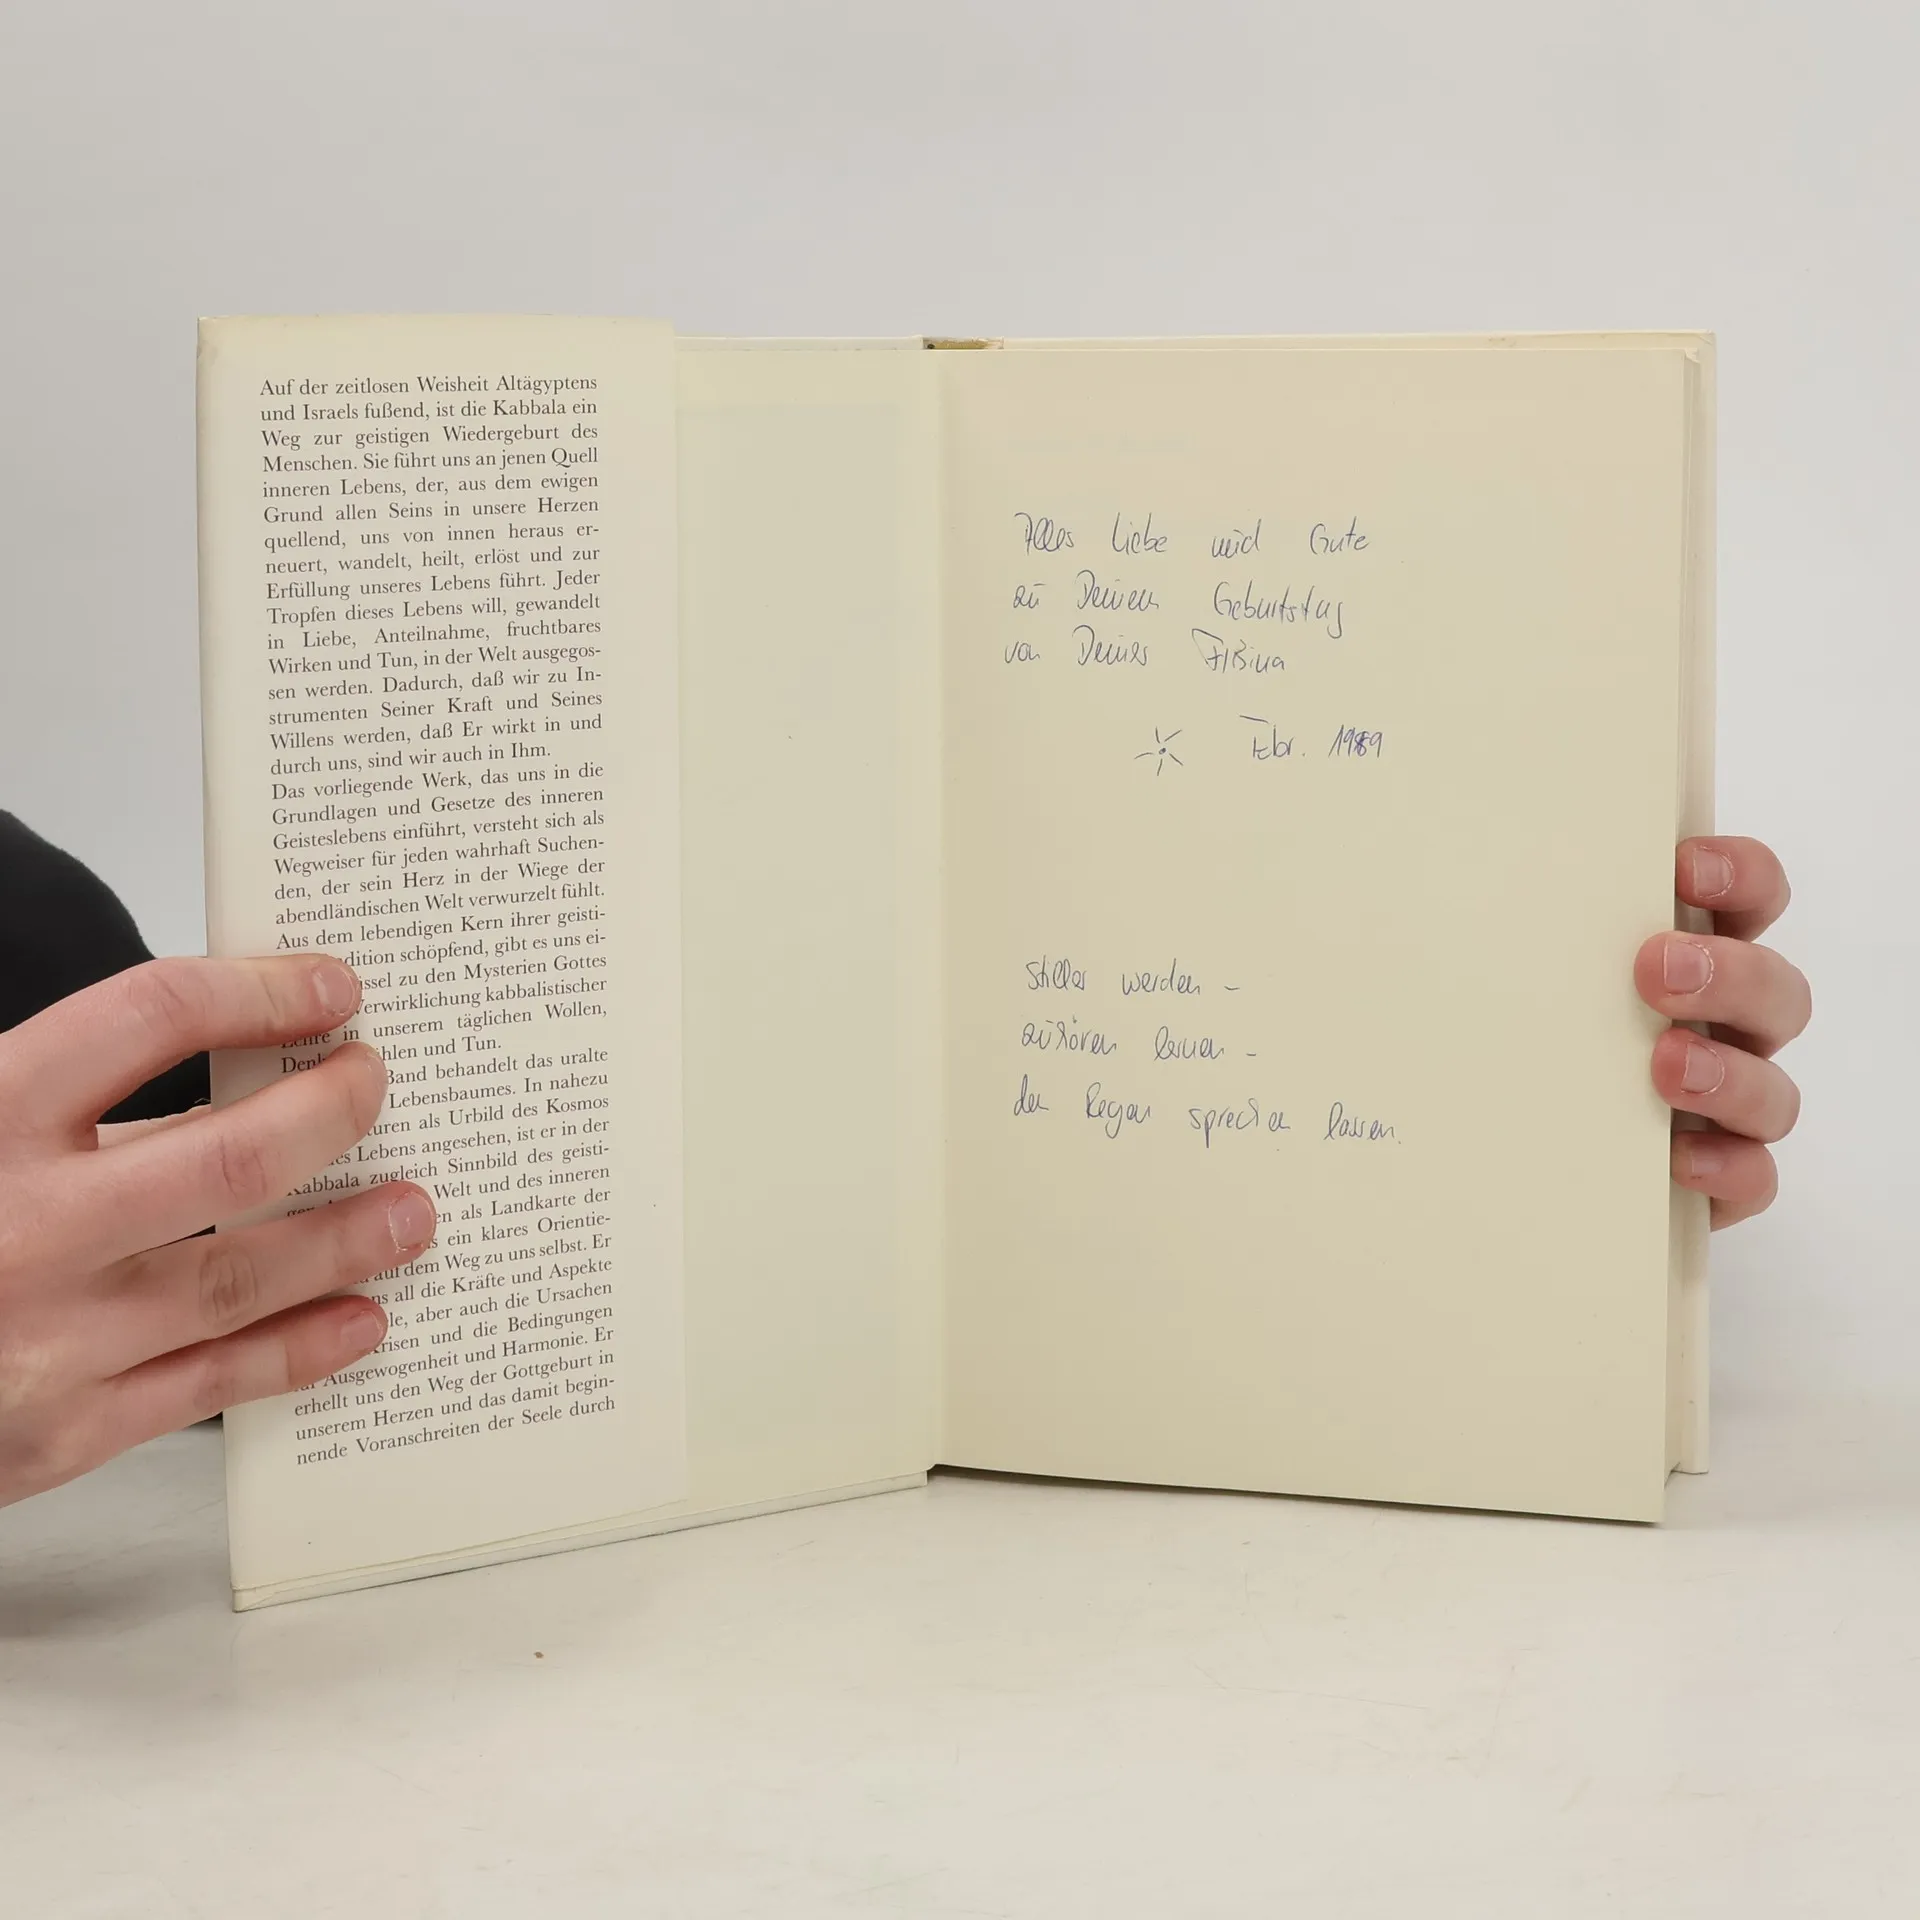 Auf der zeitlosen Weisheit Altägyptens
und Israels fußend, ist die Kabbala ein
Weg zur geistigen Wiedergeburt des
Menschen. Sie führt uns an jenen Quell
inneren Lebens, der, aus dem ewigen
Grund allen Seins in unsere Herzen
quellend, uns von innen heraus er-
neuert, wandelt, heilt, erlöst und zur
Erfüllung unseres Lebens führt. Jeder
Tropfen dieses Lebens will, gewandelt
in Liebe, Anteilnahme, fruchtbares
Wirken und Tun, in der Welt ausgegos-
sen werden. Dadurch, daß wir zu In-
strumenten Seiner Kraft und Seines
Willens werden, daß Er wirkt in und
durch uns, sind wir auch in Ihm.
Das vorliegende Werk, das uns in die
Grundlagen und Gesetze des inneren
Geisteslebens einführt, versteht sich als
Wegweiser für jeden wahrhaft Suchen-
den, der sein Herz in der Wiege der
abendländischen Welt verwurzelt fühlt.
Aus dem lebendigen Kern ihrer geisti-
dition schöpfend, gibt es uns ei-
ssel zu den Mysterien Gottes
Verwirklichung kabbalistischer
Lehre in unserem täglichen Wollen,
Denk hlen und Tun.
Band behandelt das uralte
Lebensbaumes. In nahezu
turen als Urbild des Kosmos
des Lebens angesehen, ist er in der
Kabbala zugleich Sinnbild des geisti-
gen Welt und des inneren
en als Landkarte der
s ein klares Orientie-
auf dem Weg zu uns selbst. Er
ns all die Kräfte und Aspekte
le, aber auch die Ursachen
Krisen und die Bedingungen
zur Ausgewogenheit und Harmonie. Er
erhellt uns den Weg der Gottgeburt in
unserem Herzen und das damit begin-
nende Voranschreiten der Seele durch
Alles Liebe und Gute
zu Deinem Geburtstag
von Deiner Albina
Febr. 1989
Stiller werden –
zuhören lernen –
den Regen sprechen lassen.